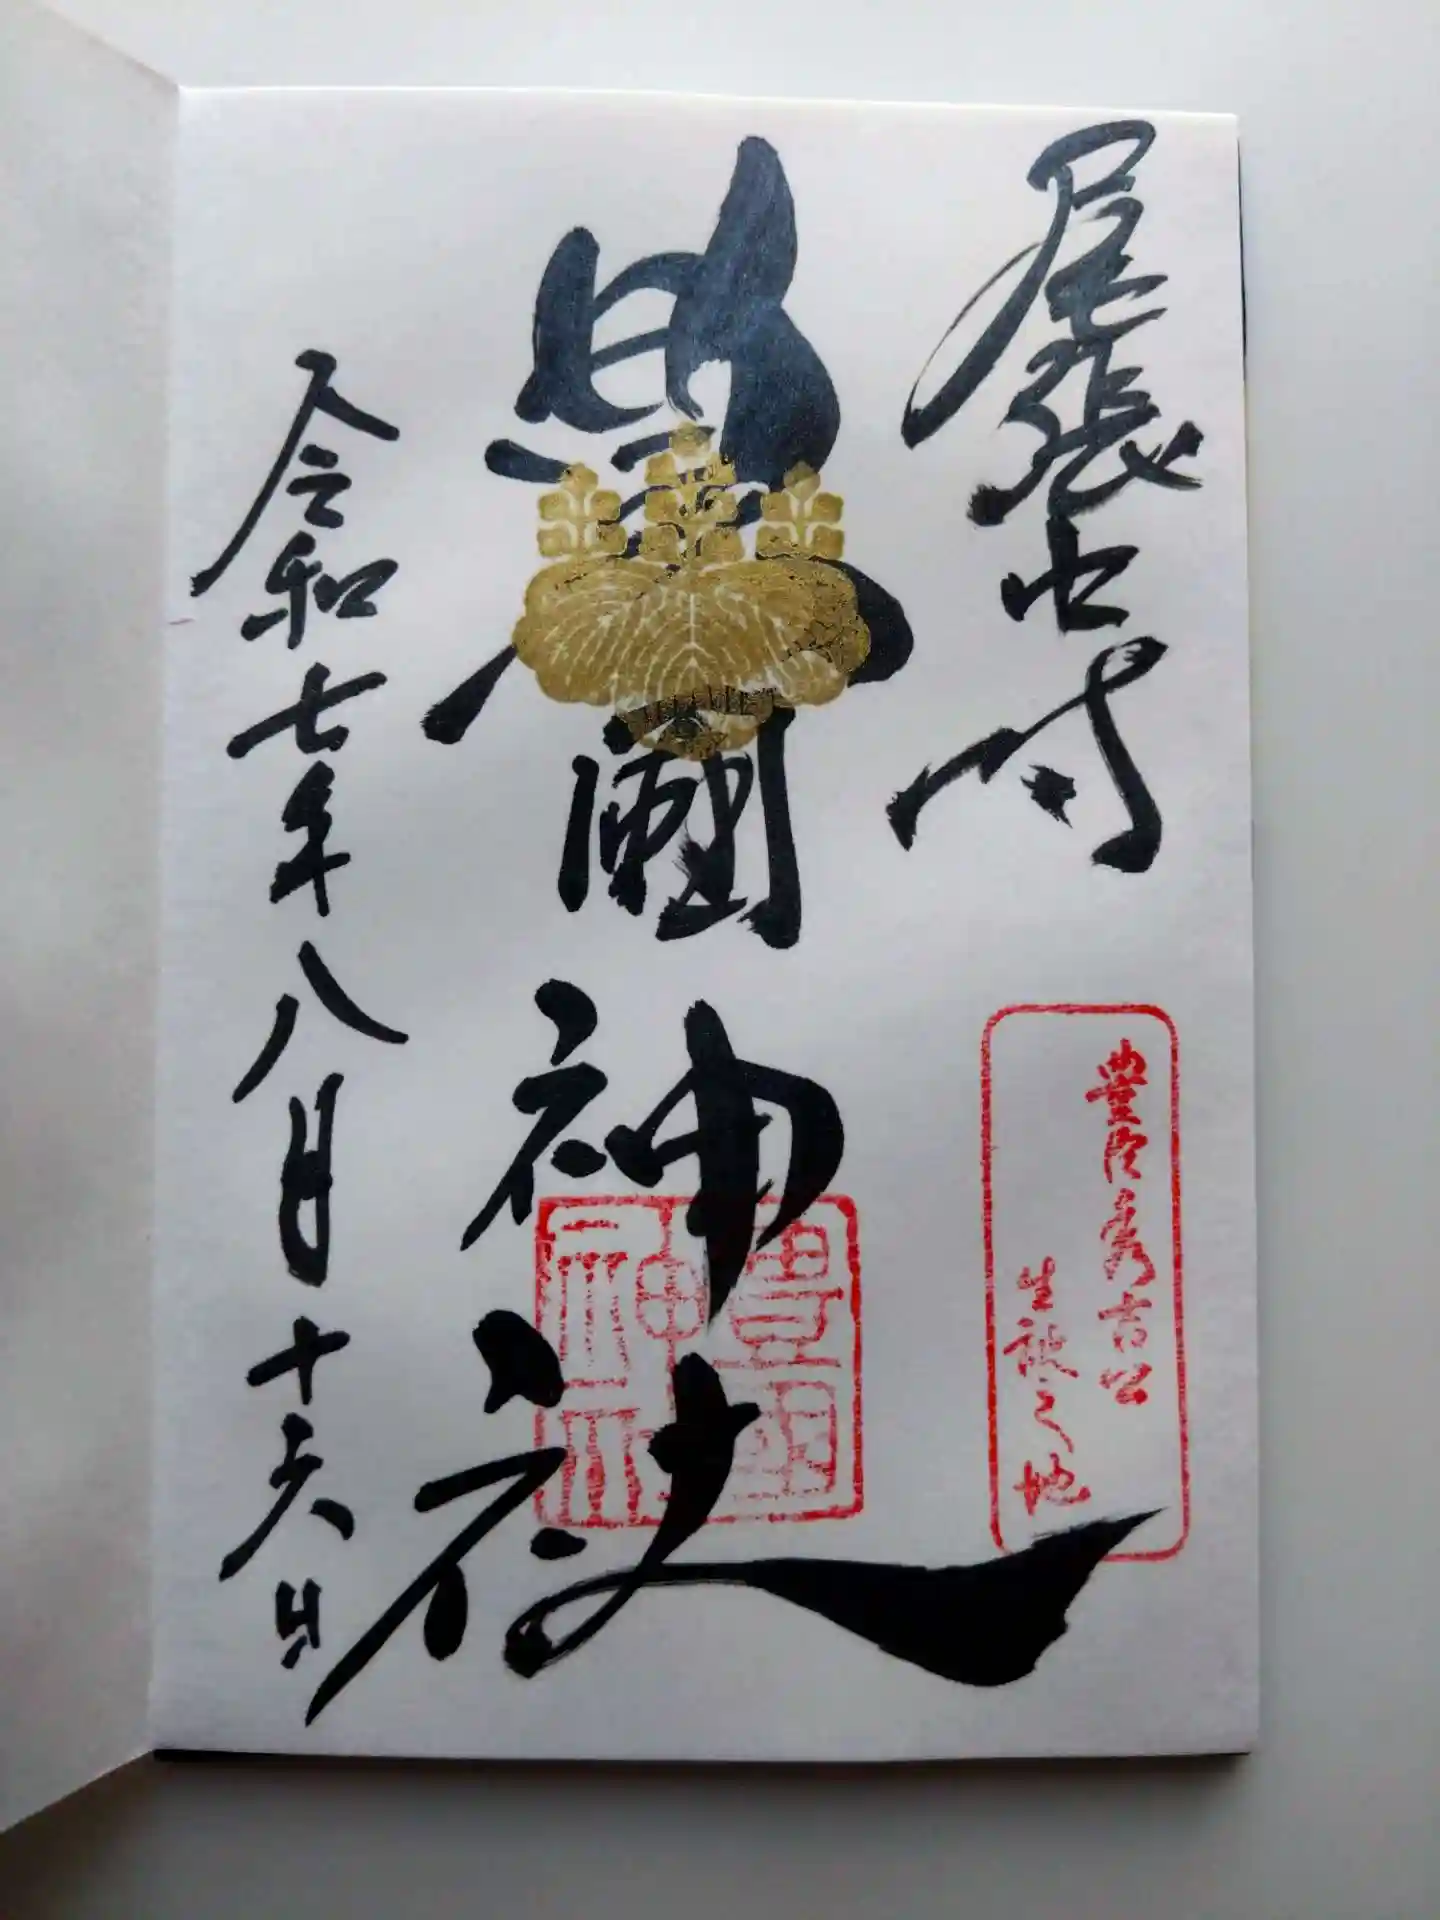 尾張中村
豊臣秀吉公
生誕之地
豊國神社
豊國神社
令和七年八月十六日